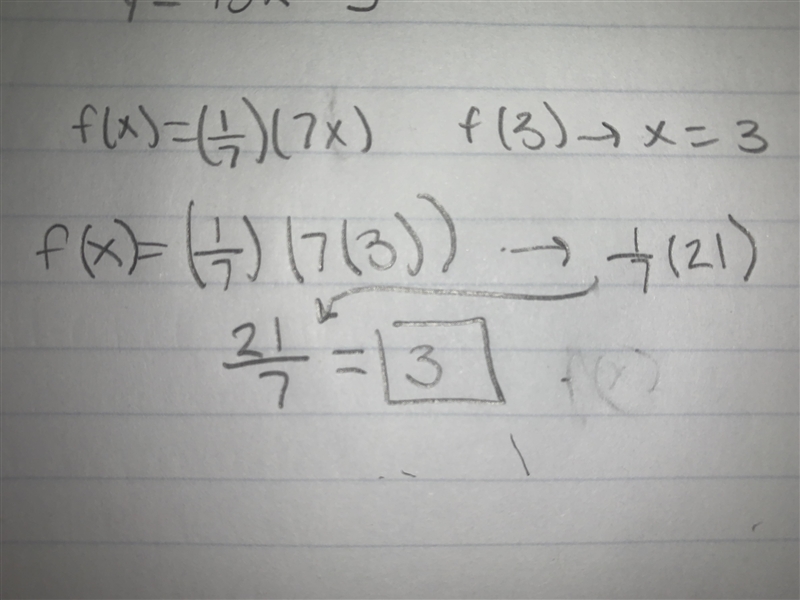 f(x)=(1/7)(7x) f(3)→x=3
f(x)=(1/7)(7(3)) → 1/7(21)
21/7 = 3 f(x)